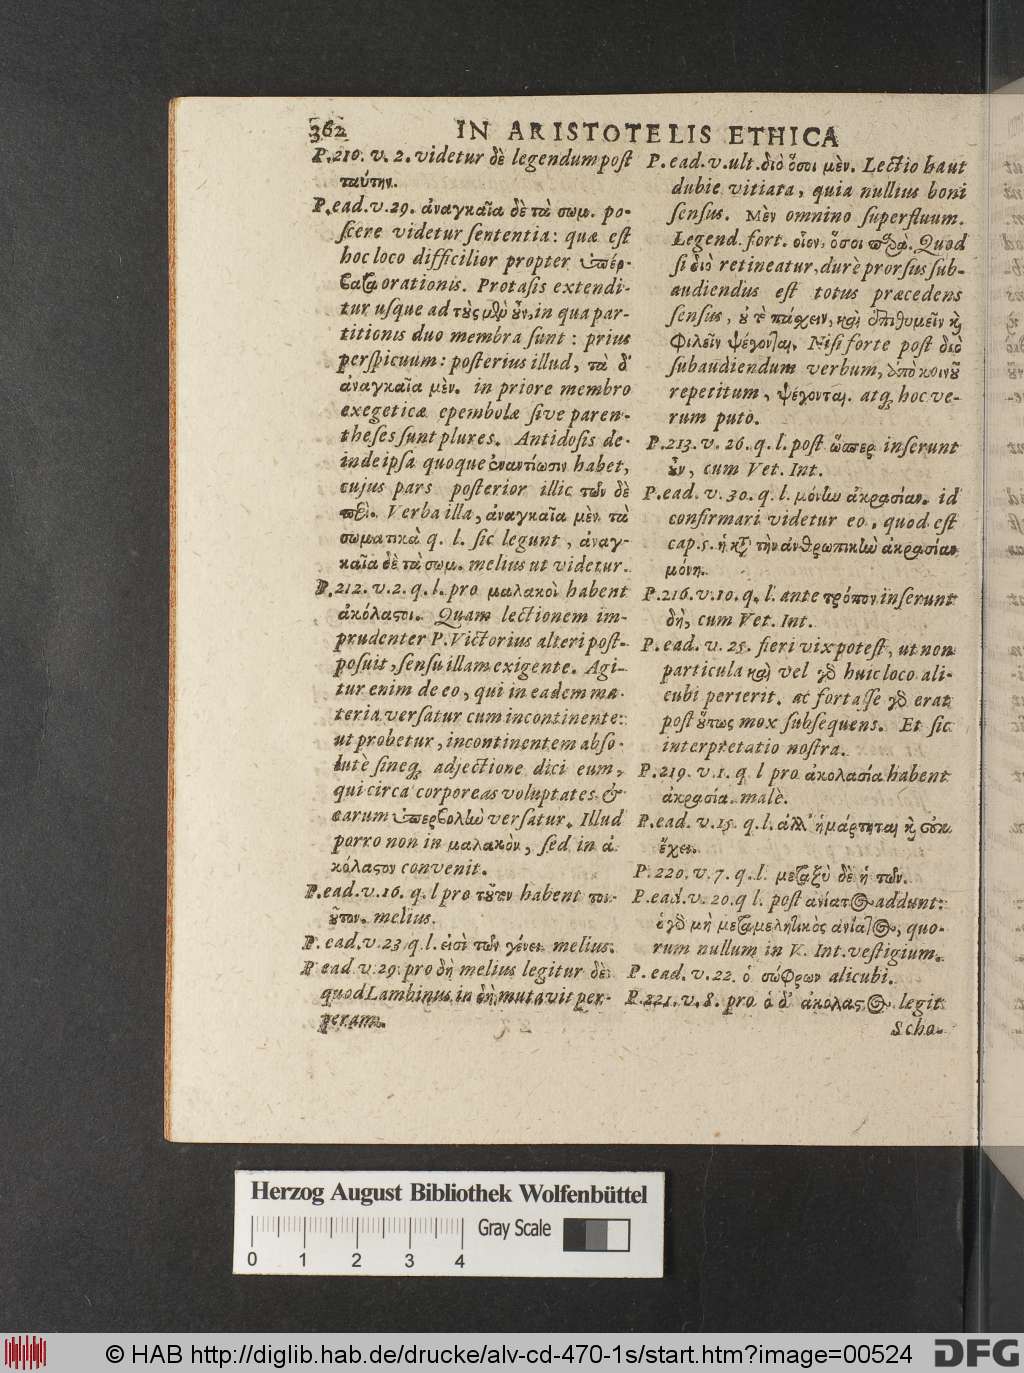 362 IN ARISTOTELIS ETHICA
P. 210. v. 2. videtur δὲ legendum post
ταύτην.
P. ead. v. 29. ἀναγκαῖα δὲ τὰ σωμ. po-
scere videtur sententia: quæ est
hoc loco difficilior propter ὑπέρ-
βατα orationis. Protasis extendi-
tur usque ad τοὺς μὲν οὖν, in qua par-
titionis duo membra sunt: prius
perspicuum: posterius illud, τὰ δ'
ἀναγκαῖα μὲν. in priore membro
exegeticæ epembolæ sive paren-
theses sunt plures. Antidosis de-
inde ipsa quoque ἐναντίωσιν habet,
cujus pars posterior illic τῶν δὲ
περὶ. Verba illa, ἀναγκαῖα μὲν τὰ
σωματικὰ q. l. sic legunt, ἀναγ-
καῖα δὲ τὰ σωμ. melius ut videtur.
P. 212. v. 2. q. l. pro μαλακοὶ habent
ἀκόλαστοι. Quam lectionem im-
prudenter P. Victorius alteri post-
posuit, sensu illam exigente. Agi-
tur enim de eo, qui in eadem ma-
teria versatur cum incontinente:
ut probetur, incontinentem abso-
lute sineq; adjectione dici eum,
qui circa corporeas voluptates &
earum ὑπερβολὴν versatur. Illud
porro non in μαλακὸν, sed in ἀ
κόλαστον convenit.
P. ead. v. 16. q. l pro τοῦτον habent τοι-
οῦτον. melius.
P. ead. v. 23. q. l. εἰσὶ τῶν γένει melius.
P ead. v. 29. pro δὴ melius legitur δὲ:
quod Lambinus in δὴ mutavit per-
peram.
P. ead. v. ult. διὸ ὅσοι μὲν. Lectio haut
dubie vitiata, quia nullius boni
sensus. Μὲν omnino superfluum.
Legend. fort. οἷον, ὅσοι παρὰ. Quod
si διὸ retineatur, durè prorsus sub-
audiendus est totus præcedens
sensus, οὐ τὸ πάσχειν, καὶ ἐπιθυμεῖν καὶ
φιλεῖν ψέγονται. Nisi forte post διὸ
subaudiendum verbum, ἀπὸ κοινοῦ
repetitum, ψέγονται. atq; hoc ve-
rum puto.
P. 213. v. 26. q. l. post ὥσπερ inserunt
οὖν, cum Vet. Int.
P. ead. v. 30. q. l. μόνην ἀκρασίαν. id
confirmari videtur eo, quod est
cap. 5. ἡ κατὰ τὴν ἀνθρωπικὴν ἀκρασίαν
μόνη.
P. 216. v. 10. q. l. ante τρόπον inserunt
δὴ, cum Vet. Int.
P. ead. v. 25. fieri vix potest, ut non
particula καὶ vel γὰρ huic loco ali-
cubi perierit. ac fortasse γὰρ erat
post οὕτως mox subsequens. Et sic
interpretatio nostra.
P. 219. v. 1. q l pro ἀκολασία habent
ἀκρασία. malè.
P. ead. v. 15. q. l. ἀλλ' ἡμάρτηται καὶ οὐκ
ἔχει.
P. 220. v. 7. q. l. μεταξὺ δὲ ἡ τῶν.
P. ead. v. 20. q l. post ἀνίατος addunt:
ὁ γὰρ μὴ μεταμελητικὸς ἀνίατος, quo-
rum nullum in V. Int. vestigium.
P. ead. v. 22. ὁ σώφρων alicubi.
P. 221. v. 8. pro ὁ δ' ἀκόλαστος legit
Scho-
Herzog August Bibliothek Wolfenbüttel
Gray Scale
0 1 2 3 4
© HAB http://diglib.hab.de/drucke/alv-cd-470-1s/start.htm?image=00524
DFG